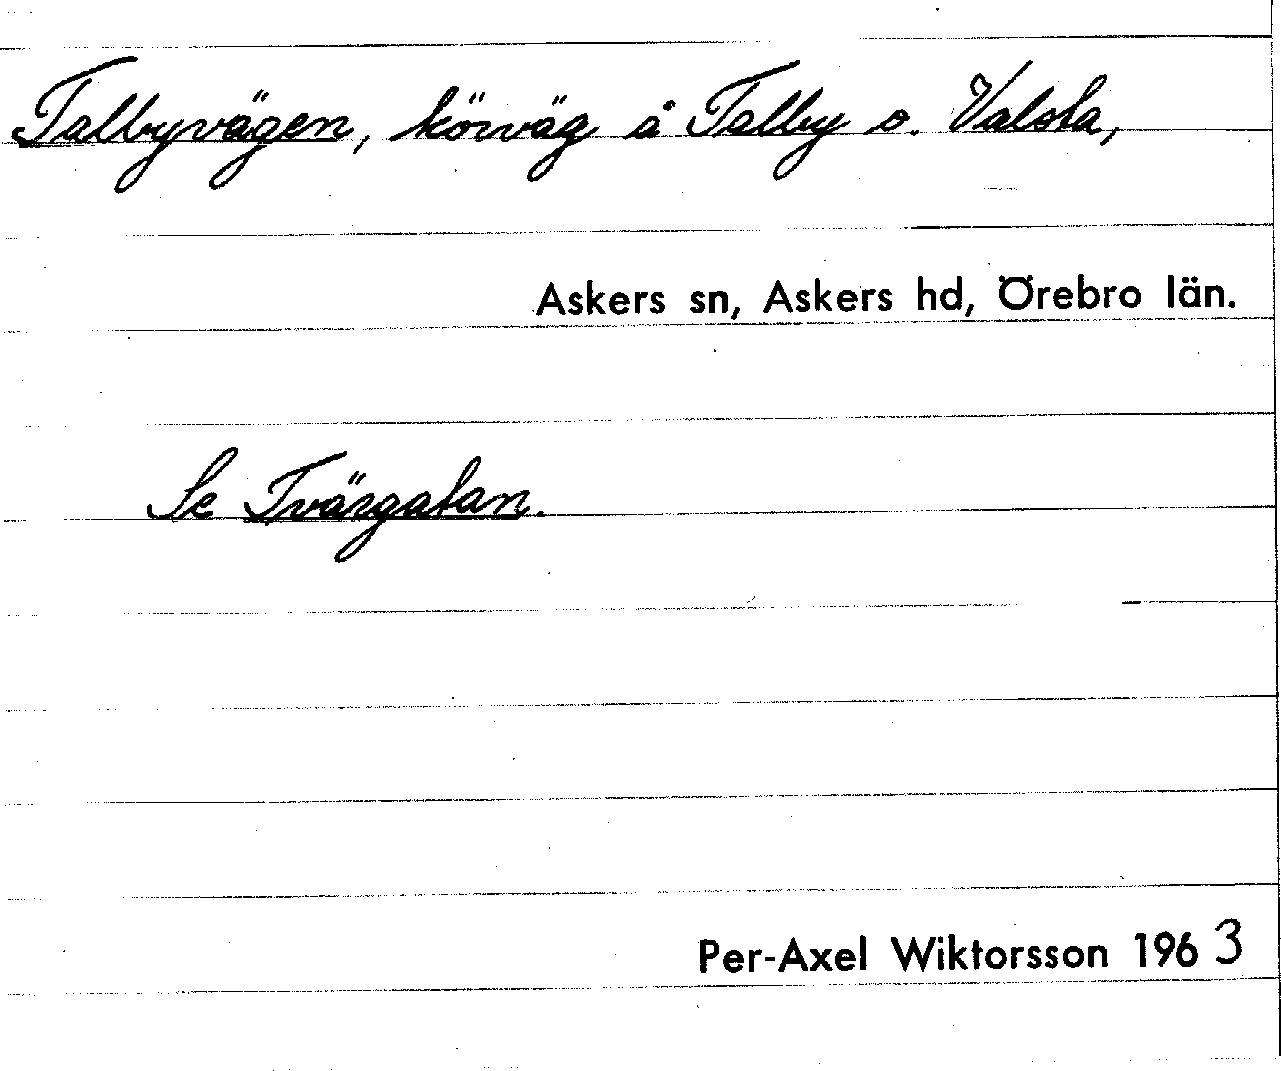 Talbyvägen, körväg å Talby o. Valsta,
Askers sn, Askers hd, Örebro län.
Se Tvärgatan.
Per-Axel Wiktorsson 1963